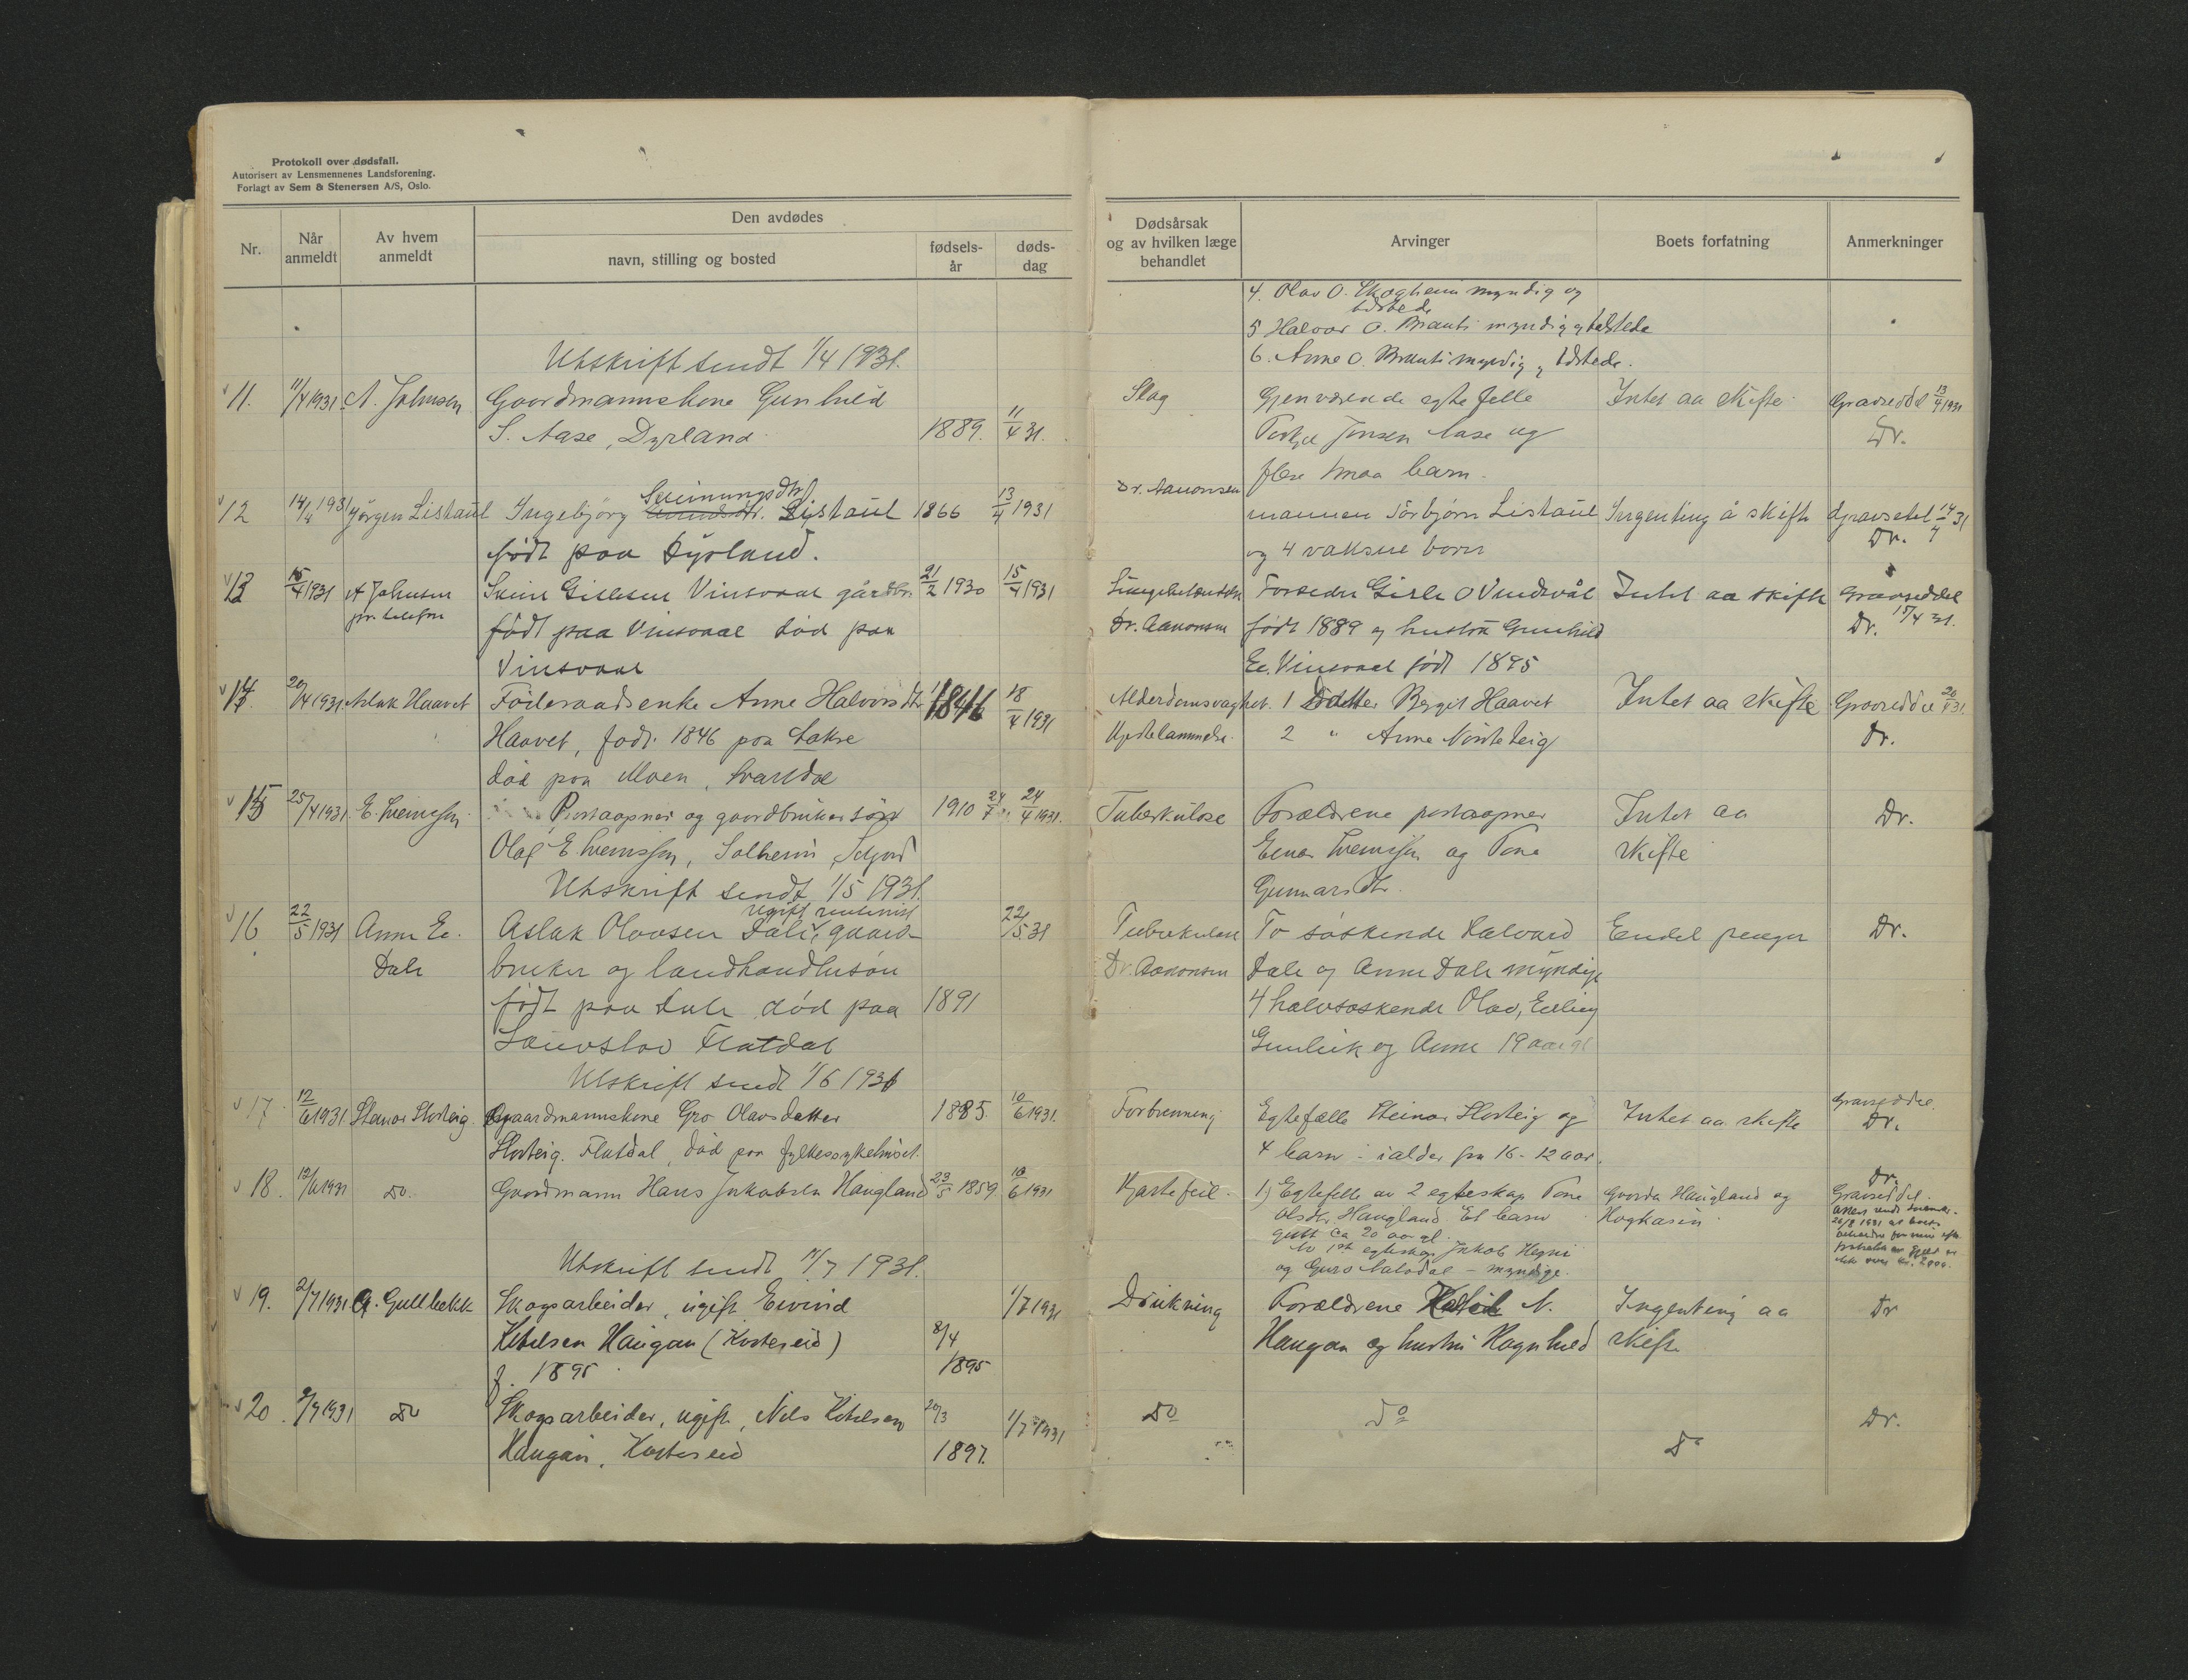 Protokoll over dødsfall.
Autorisert av Lensmennenes Landsforening.
Forlagt av Sem & Stenersen A/S, Oslo.
Nr.
Når
anmeldt
Av hvem
anmeldt
Den avdødes
navn, stilling og bosted
fødsels-
år
døds-
dag
Dødsårsak
og av hvilken læge
behandlet
Arvinger
Boets forfatning
Anmerkninger
4. Olav O. Skogheim myndig og
tilstede
5 Halvor O. Brauti myndig og tilstede
6. Anne O. Brauti myndig og tilstede.
Utskrift sendt 1/4 1931.
11. 11/4 1931 A. Johnsen Gaardmannskone Gunhild
S. Aase, Dyrland. 1889. 11/4 31.
Slag Gjenværende egtefelle Intet aa skifte. Gravseddel 13/4 1931
Jonsen Aase og Dr.
flere smaa barn.
12 14/4 1931 Jørgen Listaul Ingebjörg Sveinungsdtr. Listaul 1866 13/4 1931
født paa Dyrland.
Dr. Aanonsen
mannen Torbjørn Listaul Ingenting å skifte Gravsetel 14/4 31
og 4 vaksne born Dr.
13 15/4 1931 A Johnsen Svein Gislesen Vinsvaal gårdbr. 21/2 1930 15/4 1931
pr. telefon født paa Vinsvaal død paa
Vinsvaal
Forældre Gisle O Vindsvål Intet aa skifte Gravseddel
Dr. Aanonsen født 1889 og hustru Gunhild Dr. 15/4 31.
Ee. Vinsvaal født 1895
14. 20/4 1931. Aslak Haavet Föderaadsenke Anne Halvorsdtr. 1846 18/4 1931
Haavet, født 1846 paa Lakse
död paa Moen, Svartdal
Alderdomsvaghet. 1 Datter Bergit Haavet Intet aa skifte Gravseddel 20/4 31.
Hjertelammelse. 2 " Anne Nordteig Dr.
15 25/4 1931. E. Sveinssen. Postaapner og gaardbruker sön 1910 24/7 24/4 1931.
Olaf E. Sveinssen, Solheim, Seljord
Tuberkulose Forældrene postaapner Intet aa Dr.
Einar Sveinssen og Tone skifte
Gunnarsdtr.
Utskrift sendt 1/5 1931.
16 22/5 1931 Anne Ee. Aslak Olavsen Dale, ugift gaard- 22/5 31
Dale bruker og landhandlersön
født paa Dale död paa 1891
Flatdal
Tuberkulose To söskende Halvard Endel penger Dr.
Dr. Aanonsen Dale og Anne Dale myndige
4 halvsöskende Olav, Erling
Gunleik og Anne 19 aar gl
Utskrift sendt 1/6 1931
17. 12/6 1931. Steinar Slorteig Gaardmannskone Gro Olavsdatter 1885. 10/6 1931.
Slorteig. Flatdal, död paa fylkessykehuset.
Forbrenning Egtefælle Steinar Slorteig og Intet aa skifte Gravseddel.
4 barn - i alder fra 16-12 aar. Dr.
18. 12/6 1931 Do. Gaardmann Hans Jakobsen Haugland 23/5 1859. 10/6 1931
Hjertefeil. 1) Egtefelle av 2 egteskap Tone Gaarden Haugland og Dr.
Olsdtr. Haugland. Et barn Gravseddel.
gutt ca 20 aar gl.
Av 1ste egteskap Jakob Hegni
og Guro Natadal - myndige.
Utskrift sendt 1/7 1931.
19. 2/7 1931 G. Gullbekk Skogsarbeider, ugift Eivind 1/7 1931
Ketilsen Haugan (Kosterseid) 8/4
f. 1895. 1895
Drukning Forældrene Ketil N. Ingenting aa Dr
Haugan og hustru Ragnhild skifte
20. 2/7 1931 Do Skogsarbeider, ugift, Nils Ketilsen 20/3 1/7 1931
Haugan, Kosterseid 1897.
Do do do Dr.